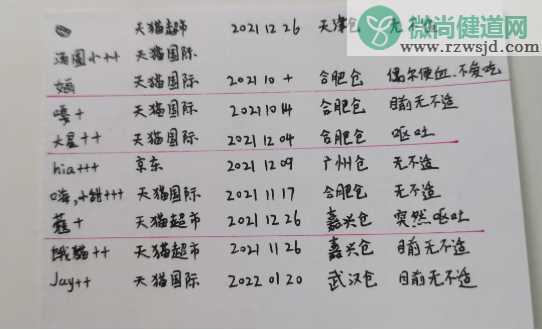 微尚健道网
www.rzwsjd.com
天猫超市 2021 12 26 天津仓 无不
汤圆小++ 天猫国际
天猫国际 2021 10 + 合肥仓 偶尔便血.不爱吃
嘎+ 天猫国际 2021 10 14 合肥仓 目前无不适
大星++ 天猫国际 2021 12 04 合肥仓 呕吐
hia+++ 京东 2021 12 09 广州仓 无不适
嗨,小甜+++ 天猫国际 2021 11 17 合肥仓 无不适
+ 天猫超市 2021 12 26 嘉兴仓 突然呕吐
饿貓++ 天猫超市 2021 11 26 嘉兴仓 目前无不适
Jay++ 天猫国际 2022 01 20 武汉仓 目前无不适